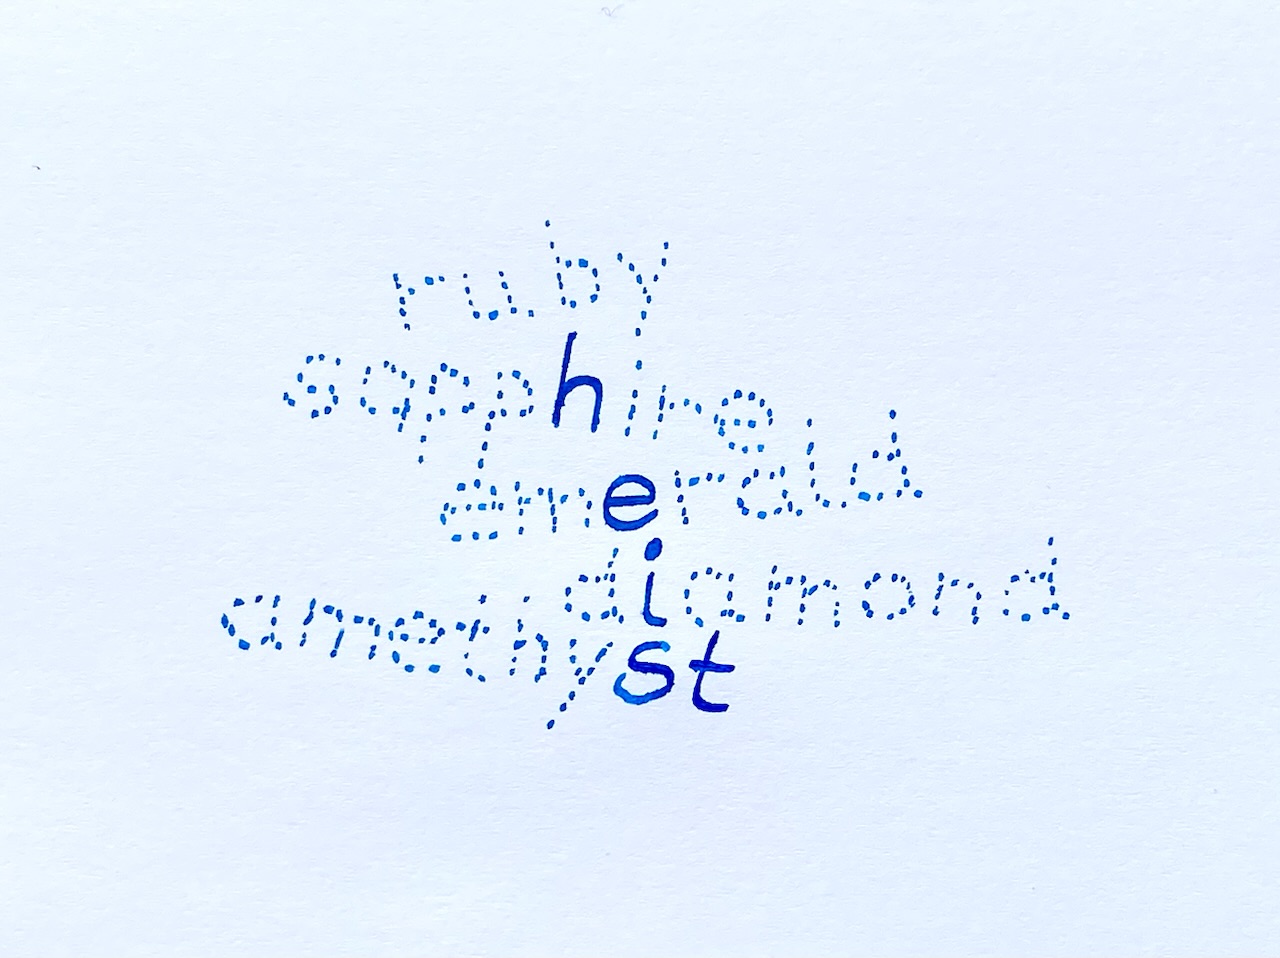 ruby
sapphire
emerald
diamond
amethyst